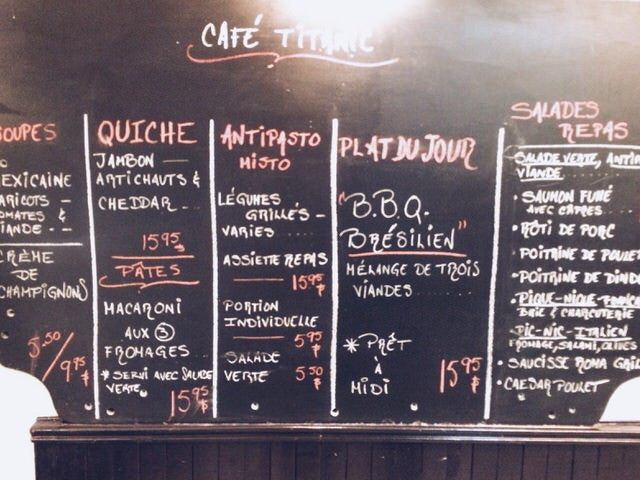 CAFÉ TITANIC
SOUPES
MEXICAINE
HARICOTS -
TOMATES &
VIANDE --
CRÈME
DE
CHAMPIGNONS
5.50/9.75$
QUICHE
JAMBON
ARTICHAUTS &
CHEDDAR...
15.95$
PÂTES
MACARONI
AUX 3
FROMAGES
* SERVI AVEC SALADE
VERTE
15.95$
ANTIPASTO
MISTO
LÉGUMES
GRILLÉS -
VARIES
ASSIETTE REPAS
15.95$
PORTION
INDIVIDUELLE
5.95$
SALADE
VERTE 5.50$
PLAT DU JOUR
"B.B.Q.
BRÉSILIEN"
MÉLANGE DE TROIS
VIANDES
* PRÊT
À
MIDI
15.95$
SALADES
REPAS
SALADE VERTE,
VIANDE
• SAUMON FUMÉ
AVEC CÂPRES
• RÔTI DE PORC
• POITRINE DE POULET
• POITRINE DE DINDE
• PIQUE-NIQUE-FRANÇAIS
BRIE & CHARCUTERIE
• PIC-NIC-ITALIEN
FROMAGE, SALAMI, OLIVES
• SAUCISSE ROMA
• CAESAR POULET